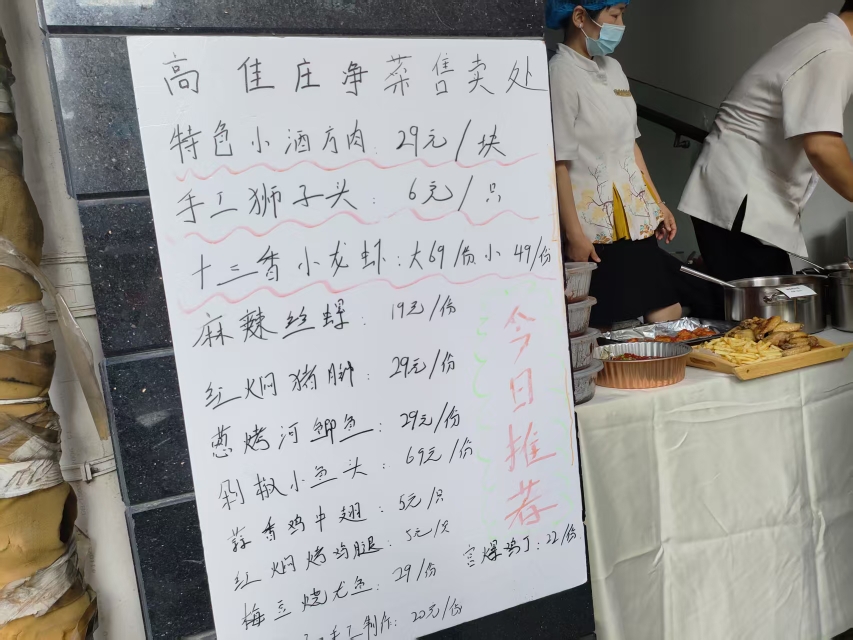 高佳庄净菜售卖处
特色小酒方肉:29元/块
手工狮子头:6元/只
十三香小龙虾:大69/份小49/份
麻辣丝螺:19元/份
红焖猪脚:29元/份
葱烤河鲫鱼:29元/份
剁椒小鱼头:69元/份
蒜香鸡中翅:5元/只
红焖烤鸡腿:5元/只
宫爆鸡丁:22/份
梅豆烧尤鱼:29/份
手工制作:22元/份
今日推荐